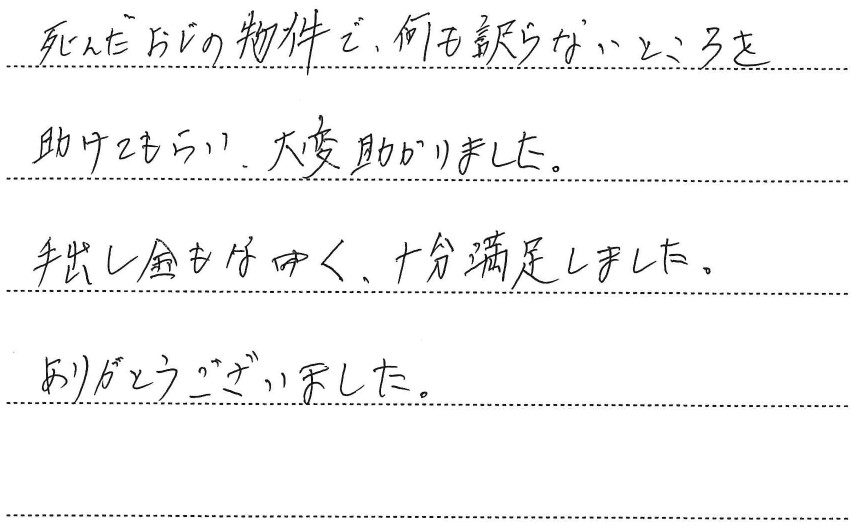 死んだおじの物件で、何も訳らないところを
助けてもらい、大変助かりました。
手出し金もなく、十分満足しました。
ありがとうございました。